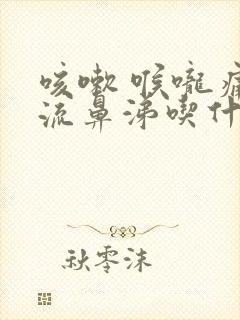 咳嗽 喉嚨痛
流鼻涕喫什
秋零沫